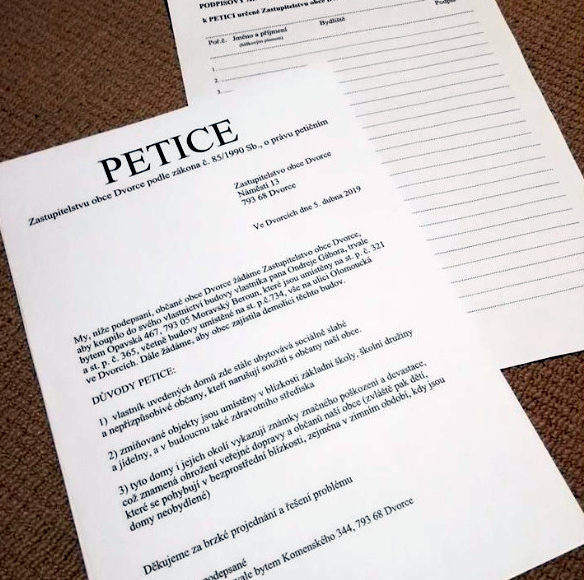 PODPISOVÝ
k PETICI určené Zastupitelstvu obce
Poř.č. Jméno a příjmení
Bydliště
Podpis
(hůlkovým písmem)
1.
2.
3.
PETICE
Zastupitelstvu obce Dvorce podle zákona č. 85/1990 Sb., o právu petičním
Zastupitelstvo obce Dvorce
Náměstí 13
793 68 Dvorce
Ve Dvorcích dne 5. dubna 2019
My, níže podepsaní, občané obce Dvorce žádáme Zastupitelstvo obce Dvorce,
aby koupilo do svého vlastnictví budovy vlastníka pana Ondreje Gábora, trvale
bytem Opavská 467, 793 05 Moravský Beroun, které jsou umístěny na st. p. č. 321
a st. p. č. 365, včetně budovy umístěné na st. p.č.734, vše na ulici Olomoucká
ve Dvorcích. Dále žádáme, aby obec zajistila demolici těchto budov.
DŮVODY PETICE:
1) vlastník uvedených domů zde stále ubytovává sociálně slabé
a nepřizpůsobivé občany, kteří narušují soužití s občany naší obce.
2) zmiňované objekty jsou umístěny v blízkosti základní školy, školní družiny
a jídelny, a v budoucnu také zdravotního střediska
3) tyto domy i jejich okolí vykazují známky značného poškození a devastace,
což znamená ohrožení veřejné dopravy a občanů naší obce (zvláště pak dětí,
které se pohybují v bezprostřední blízkosti, zejména v zimním období, kdy jsou
domy neobydlené)
Děkujeme za brzké projednání a řešení problému
podepsané
vale bytem Komenského 344, 793 68 Dvorce